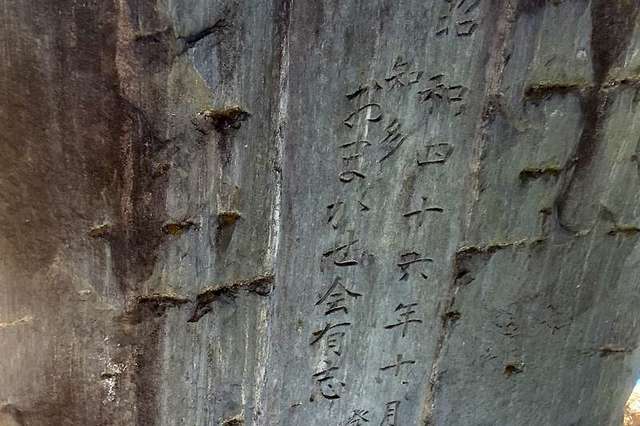 昭和四十六年十月
知多
おまかせ会有志